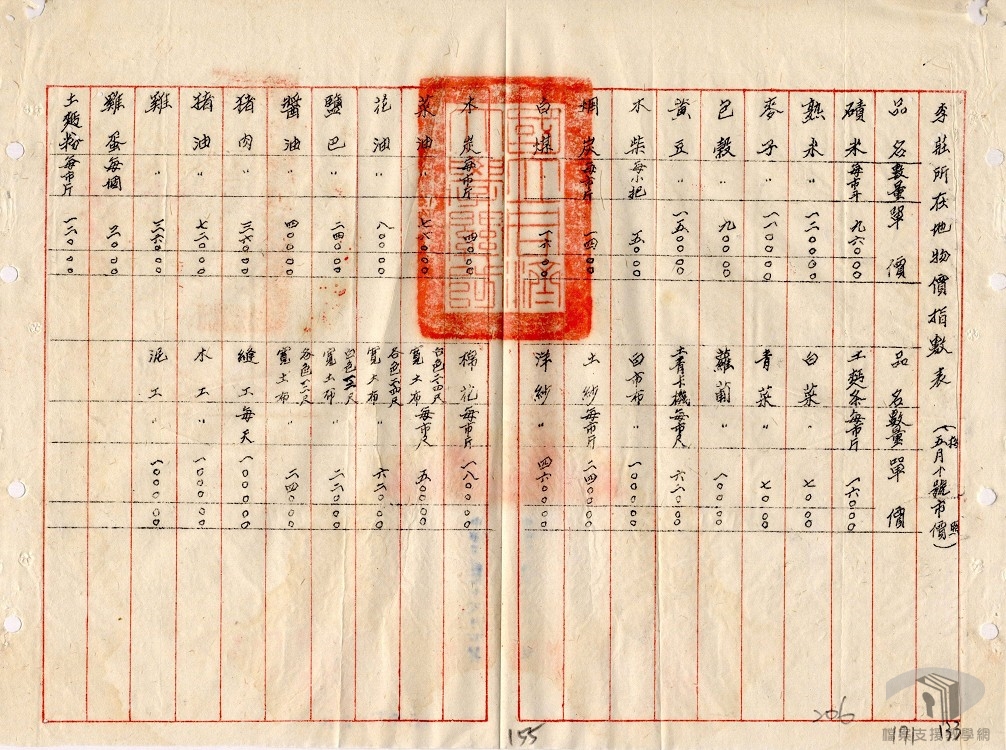 李莊所在地物價指數表（按照五月十號市價）
品名 數量 單價
磧米 每市斗 九六〇〇〇
熟米 〃 一二〇〇〇〇
麥子 〃 一一〇〇〇〇
包穀 〃 九〇〇〇〇
黃豆 〃 一五〇〇〇〇
木柴 每小把 五〇〇〇
炭 每市斤 一四〇〇〇
白煤 〃 一六〇〇
木炭 每市斤 四〇〇〇
菜油 〃 七六〇〇〇
花油 〃 八〇〇〇〇
鹽巴 〃 二四〇〇〇
醬油 〃 四〇〇〇〇
猪肉 〃 三六〇〇〇
猪油 〃 七二〇〇〇
雞 〃 三六〇〇〇
雞蛋 每個 三〇〇〇
土麵粉 每市斤 一二〇〇〇
品名 數量 單價
土麵条 每市斤 一六〇〇〇
白菜 〃 七〇〇〇
青菜 〃 七〇〇〇
蘿蔔 〃 一〇〇〇〇
士青卡機 每市尺 六八〇〇〇
白市布 〃 一〇〇〇〇〇
土紗 每市斤 二四〇〇〇〇
洋紗 〃 四六〇〇〇〇
棉花 每市斤 一八〇〇〇〇
白色二四尺寬土布 每市尺 五〇〇〇〇
各色二四尺寬土布 〃 六二〇〇〇
白色一二尺寬土布 〃 二二〇〇〇
各色一二尺寬土布 〃 二四〇〇〇
縫工 每天 一〇〇〇〇〇
木工 〃 一〇〇〇〇〇
泥工 〃 一〇〇〇〇〇
206
155
191
133
檔案支援教學網